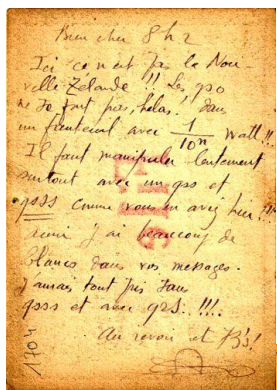 Bien cher 8hz
Ici ce n'est pas la Nou
velle Zélande !!! Les qso
ne se font pas, hélas ! dans
un fauteuil avec 1/10ⁿ Watt !!
Il faut manipuler lentement
surtout avec un qss et
qsss comme vous en aviez hier !!!
j'ai beaucoup de
blancs dans vos messages.
J'aurais tout pris sans
qsss et avec qrs !!!!
Au revoir et 73's !
1704